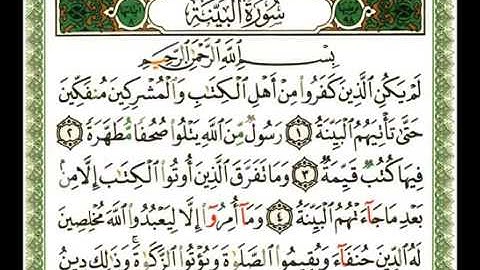 سُورَةُ الْبَيِّنَةِ
بِسْمِ اللَّهِ الرَّحْمَٰنِ الرَّحِيمِ
لَمْ يَكُنِ الَّذِينَ كَفَرُوا مِنْ أَهْلِ الْكِتَابِ وَالْمُشْرِكِينَ مُنْفَكِّينَ
حَتَّىٰ تَأْتِيَهُمُ الْبَيِّنَةُ ١ رَسُولٌ مِّنَ اللَّهِ يَتْلُوا صُحُفًا مُّطَهَّرَةً ٢
فِيهَا كُتُبٌ قَيِّمَةٌ ٣ وَمَا تَفَرَّقَ الَّذِينَ أُوتُوا الْكِتَابَ إِلَّا مِنْ
بَعْدِ مَا جَاءَتْهُمُ الْبَيِّنَةُ ٤ وَمَا أُمِرُوا إِلَّا لِيَعْبُدُوا اللَّهَ مُخْلِصِينَ
لَهُ الدِّينَ حُنَفَاءَ وَيُقِيمُوا الصَّلَوٰةَ وَيُؤْتُوا الزَّكَوٰةَ ۚ وَذَٰلِكَ دِينُ